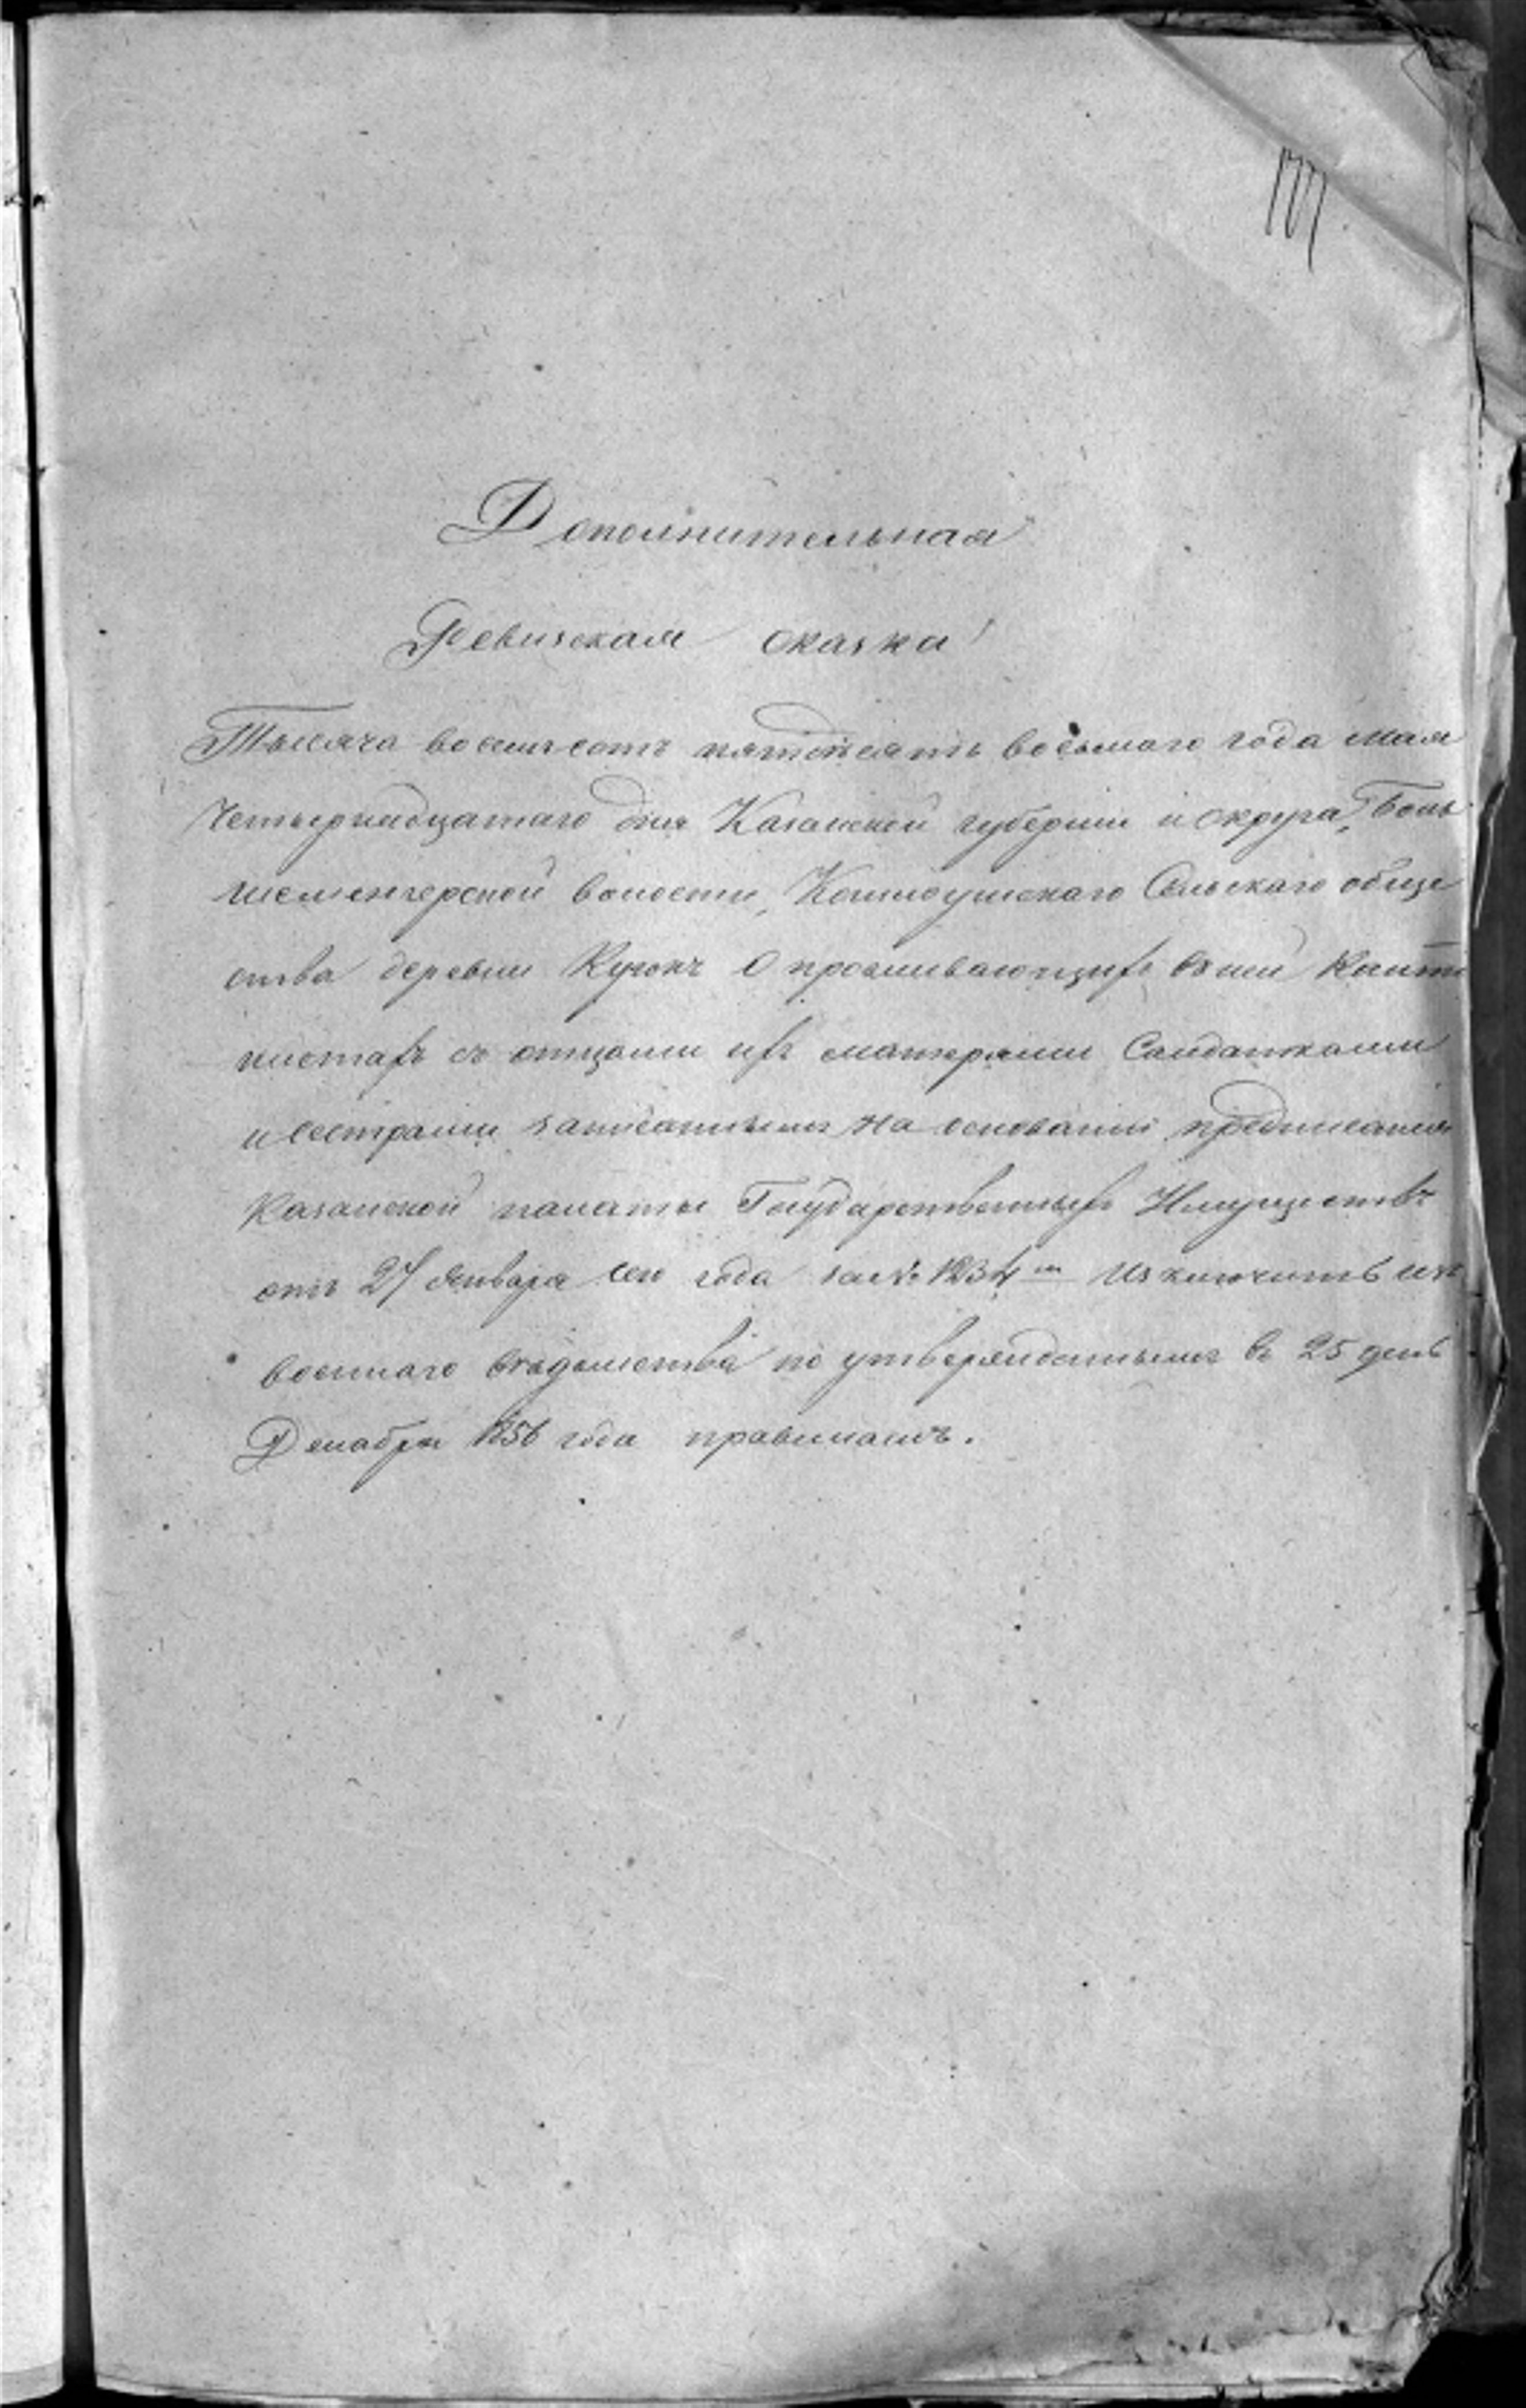 Дополнительная
Ревизская сказка
Тысяча восемьсотъ пятьдесятъ восьмаго года мая
Четырнадцатаго дня Казанской губерніи и округа, Боль
шеменгерской волости, Сельскаго обще
ства деревни О проживающихъ въ ней Канто
нистахъ съ отцами ихъ матерями Салдатками
и сестрами записанными на основаніи предписанія
Казанской палаты Государственныхъ Имуществъ
отъ 27 Января сего года за № 1234 Изключить изъ
военнаго вѣдомства по утвержденнымъ въ 25 день
Декабря 1856 года правиламъ.